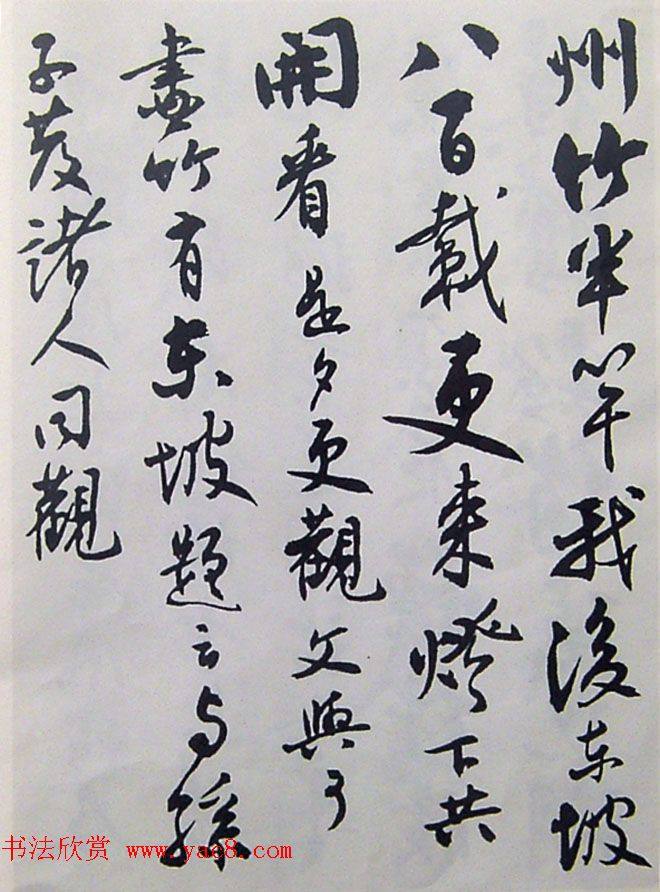 州竹半竿我後东坡
八百載更来燈下共
開看是夕更觀文與可
畫竹有东坡題云与孫
子發諸人同觀
书法欣赏 www.yac8.com